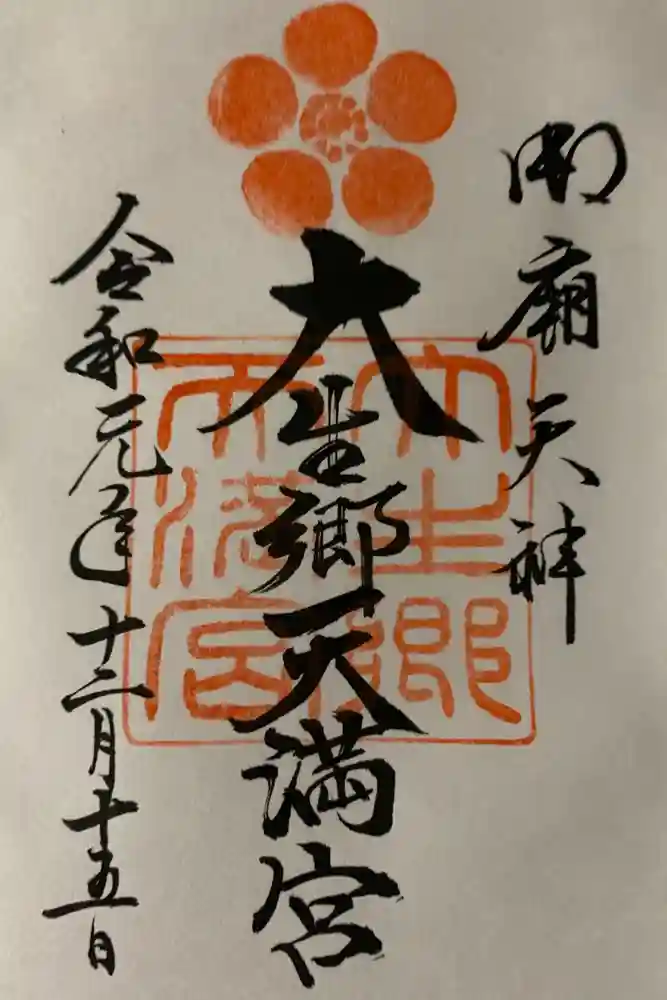 御廟天神
大生郷天満宮
大生郷
天満宮
令和元年十二月十五日